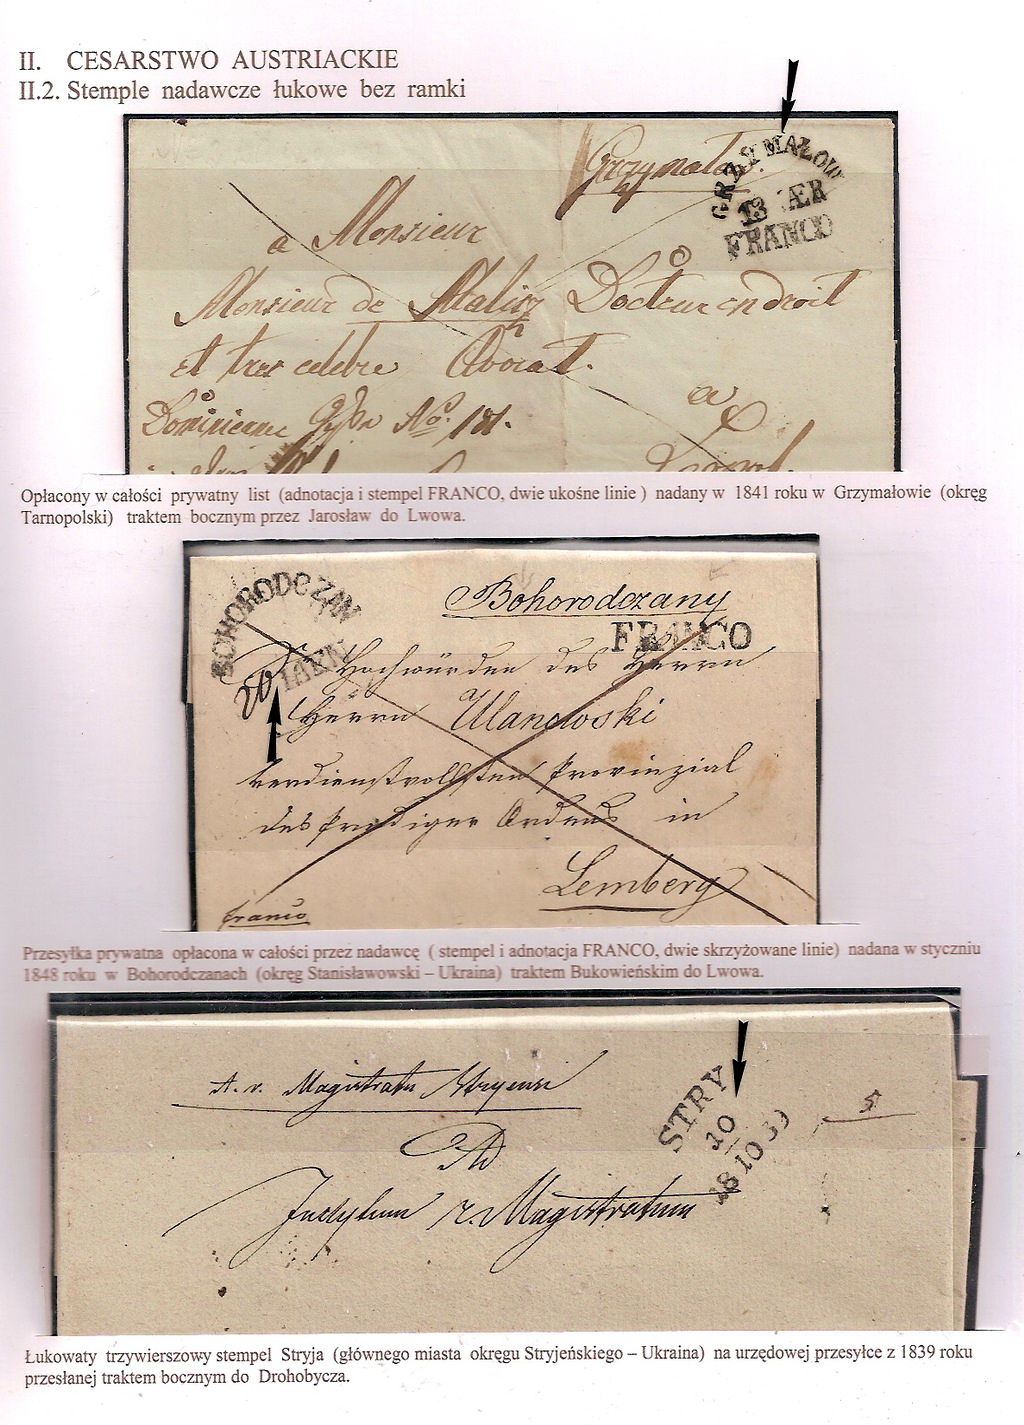 II. CESARSTWO AUSTRIACKIE
II.2. Stemple nadawcze łukowe bez ramki
Grzymałow.
GRZYMAŁOW
13 ÆR
FRANCO
a Monsieur
Monsieur de Malisz Docteur en droit
et tres celebre Avocat.
Dominicane No. 181.
a
Opłacony w całości prywatny list (adnotacja i stempel FRANCO, dwie ukośne linie ) nadany w 1841 roku w Grzymałowie (okręg
Tarnopolski) traktem bocznym przez Jarosław do Lwowa.
BOHORODCZAN
20 IAEN
Bohorodczany
FRANCO
Hochwürden des Herrn
Herrn Ulanowski
verdienstvollsten Provinzial
des Prediger Ordens in
Lemberg
franco
Przesyłka prywatna opłacona w całości przez nadawcę ( stempel i adnotacja FRANCO, dwie skrzyżowane linie) nadana w styczniu
1848 roku w Bohorodczanach (okręg Stanisławowski – Ukraina) traktem Bukowieńskim do Lwowa.
Magistratu
STRY
10
18 10 39
5
Ad
Magistratum
Łukowaty trzywierszowy stempel Stryja (głównego miasta okręgu Stryjeńskiego – Ukraina) na urzędowej przesyłce z 1839 roku
przesłanej traktem bocznym do Drohobycza.